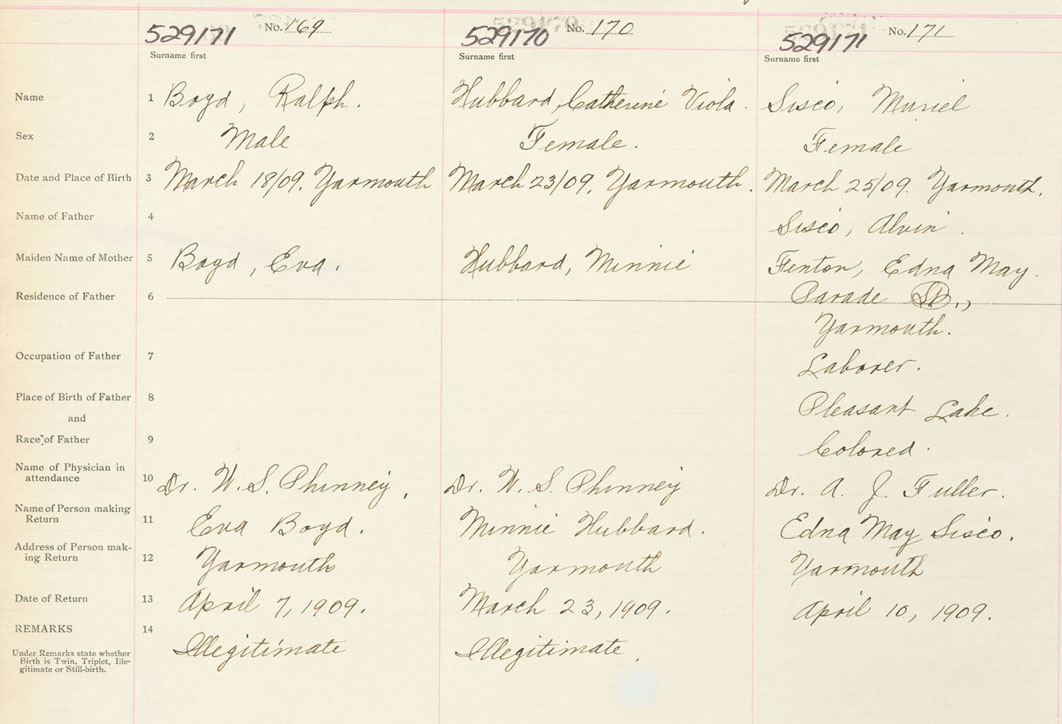 529171 No. 169 529170 No. 170 529171 No. 171
Surname first Surname first Surname first
Name 1 Boyd, Ralph. Hubbard, Catherine Viola. Sisco, Muriel
Sex 2 Male Female. Female
Date and Place of Birth 3 March 18/09. Yarmouth March 23/09. Yarmouth. March 25/09. Yarmouth.
Name of Father 4 Sisco, Alvin.
Maiden Name of Mother 5 Boyd, Eva. Hubbard, Minnie Fenton, Edna May.
Residence of Father 6 Parade St.,
Yarmouth.
Occupation of Father 7 Laborer.
Place of Birth of Father 8 Pleasant Lake.
and
Race of Father 9 Colored.
Name of Physician in
attendance 10 Dr. W. S. Phinney, Dr. W. S. Phinney Dr. A. J. Fuller.
Name of Person making
Return 11 Eva Boyd. Minnie Hubbard. Edna May Sisco.
Address of Person mak-
ing Return 12 Yarmouth Yarmouth Yarmouth
Date of Return 13 April 7, 1909. March 23, 1909. April 10, 1909.
REMARKS 14 Illegitimate Illegitimate.
Under Remarks state whether
Birth is Twin, Triplet, Ille-
gitimate or Still-birth.